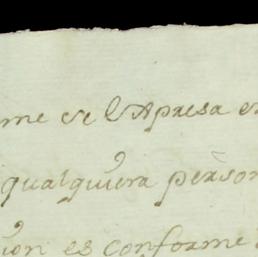 me se l Apresa e
qualquiera person
ion es conforme